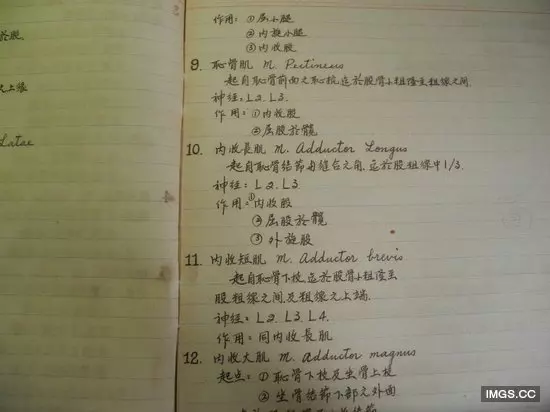 於股
之上緣
Latae
作用: ① 屈小腿
② 内旋小腿
③ 内收股
9. 恥骨肌 M. Pectineus
起自恥骨前面之恥梳, 迄於股骨小粗隆至粗線之间.
神经: L2. L3.
作用: ① 内收股
② 屈股於髖
10. 内收長肌 M. Adductor Longus
起自恥骨结節与縫合之角, 迄於股粗線中1/3.
神经: L2. L3
作用: ① 内收股
② 屈股於髖
③ 外旋股
11. 内收短肌 M. Adductor brevis
起自恥骨下枝, 迄於股骨小粗隆至
股粗線之间, 及粗線之上端.
神经: L2. L3. L4.
作用: 同内收長肌
12. 内收大肌 M. Adductor magnus
起点: ① 恥骨下枝及坐骨上枝
② 坐骨结節下部之外面
IMGS.CC